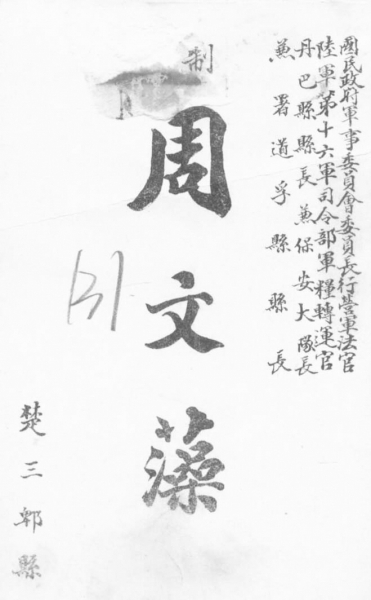 國民政府軍事委員會委員長行營軍法官
陸軍第十六軍司令部軍糧轉運官
丹巴縣縣長兼保安大隊長
兼署道孚縣縣長
制
周文藻
131
楚三郫縣